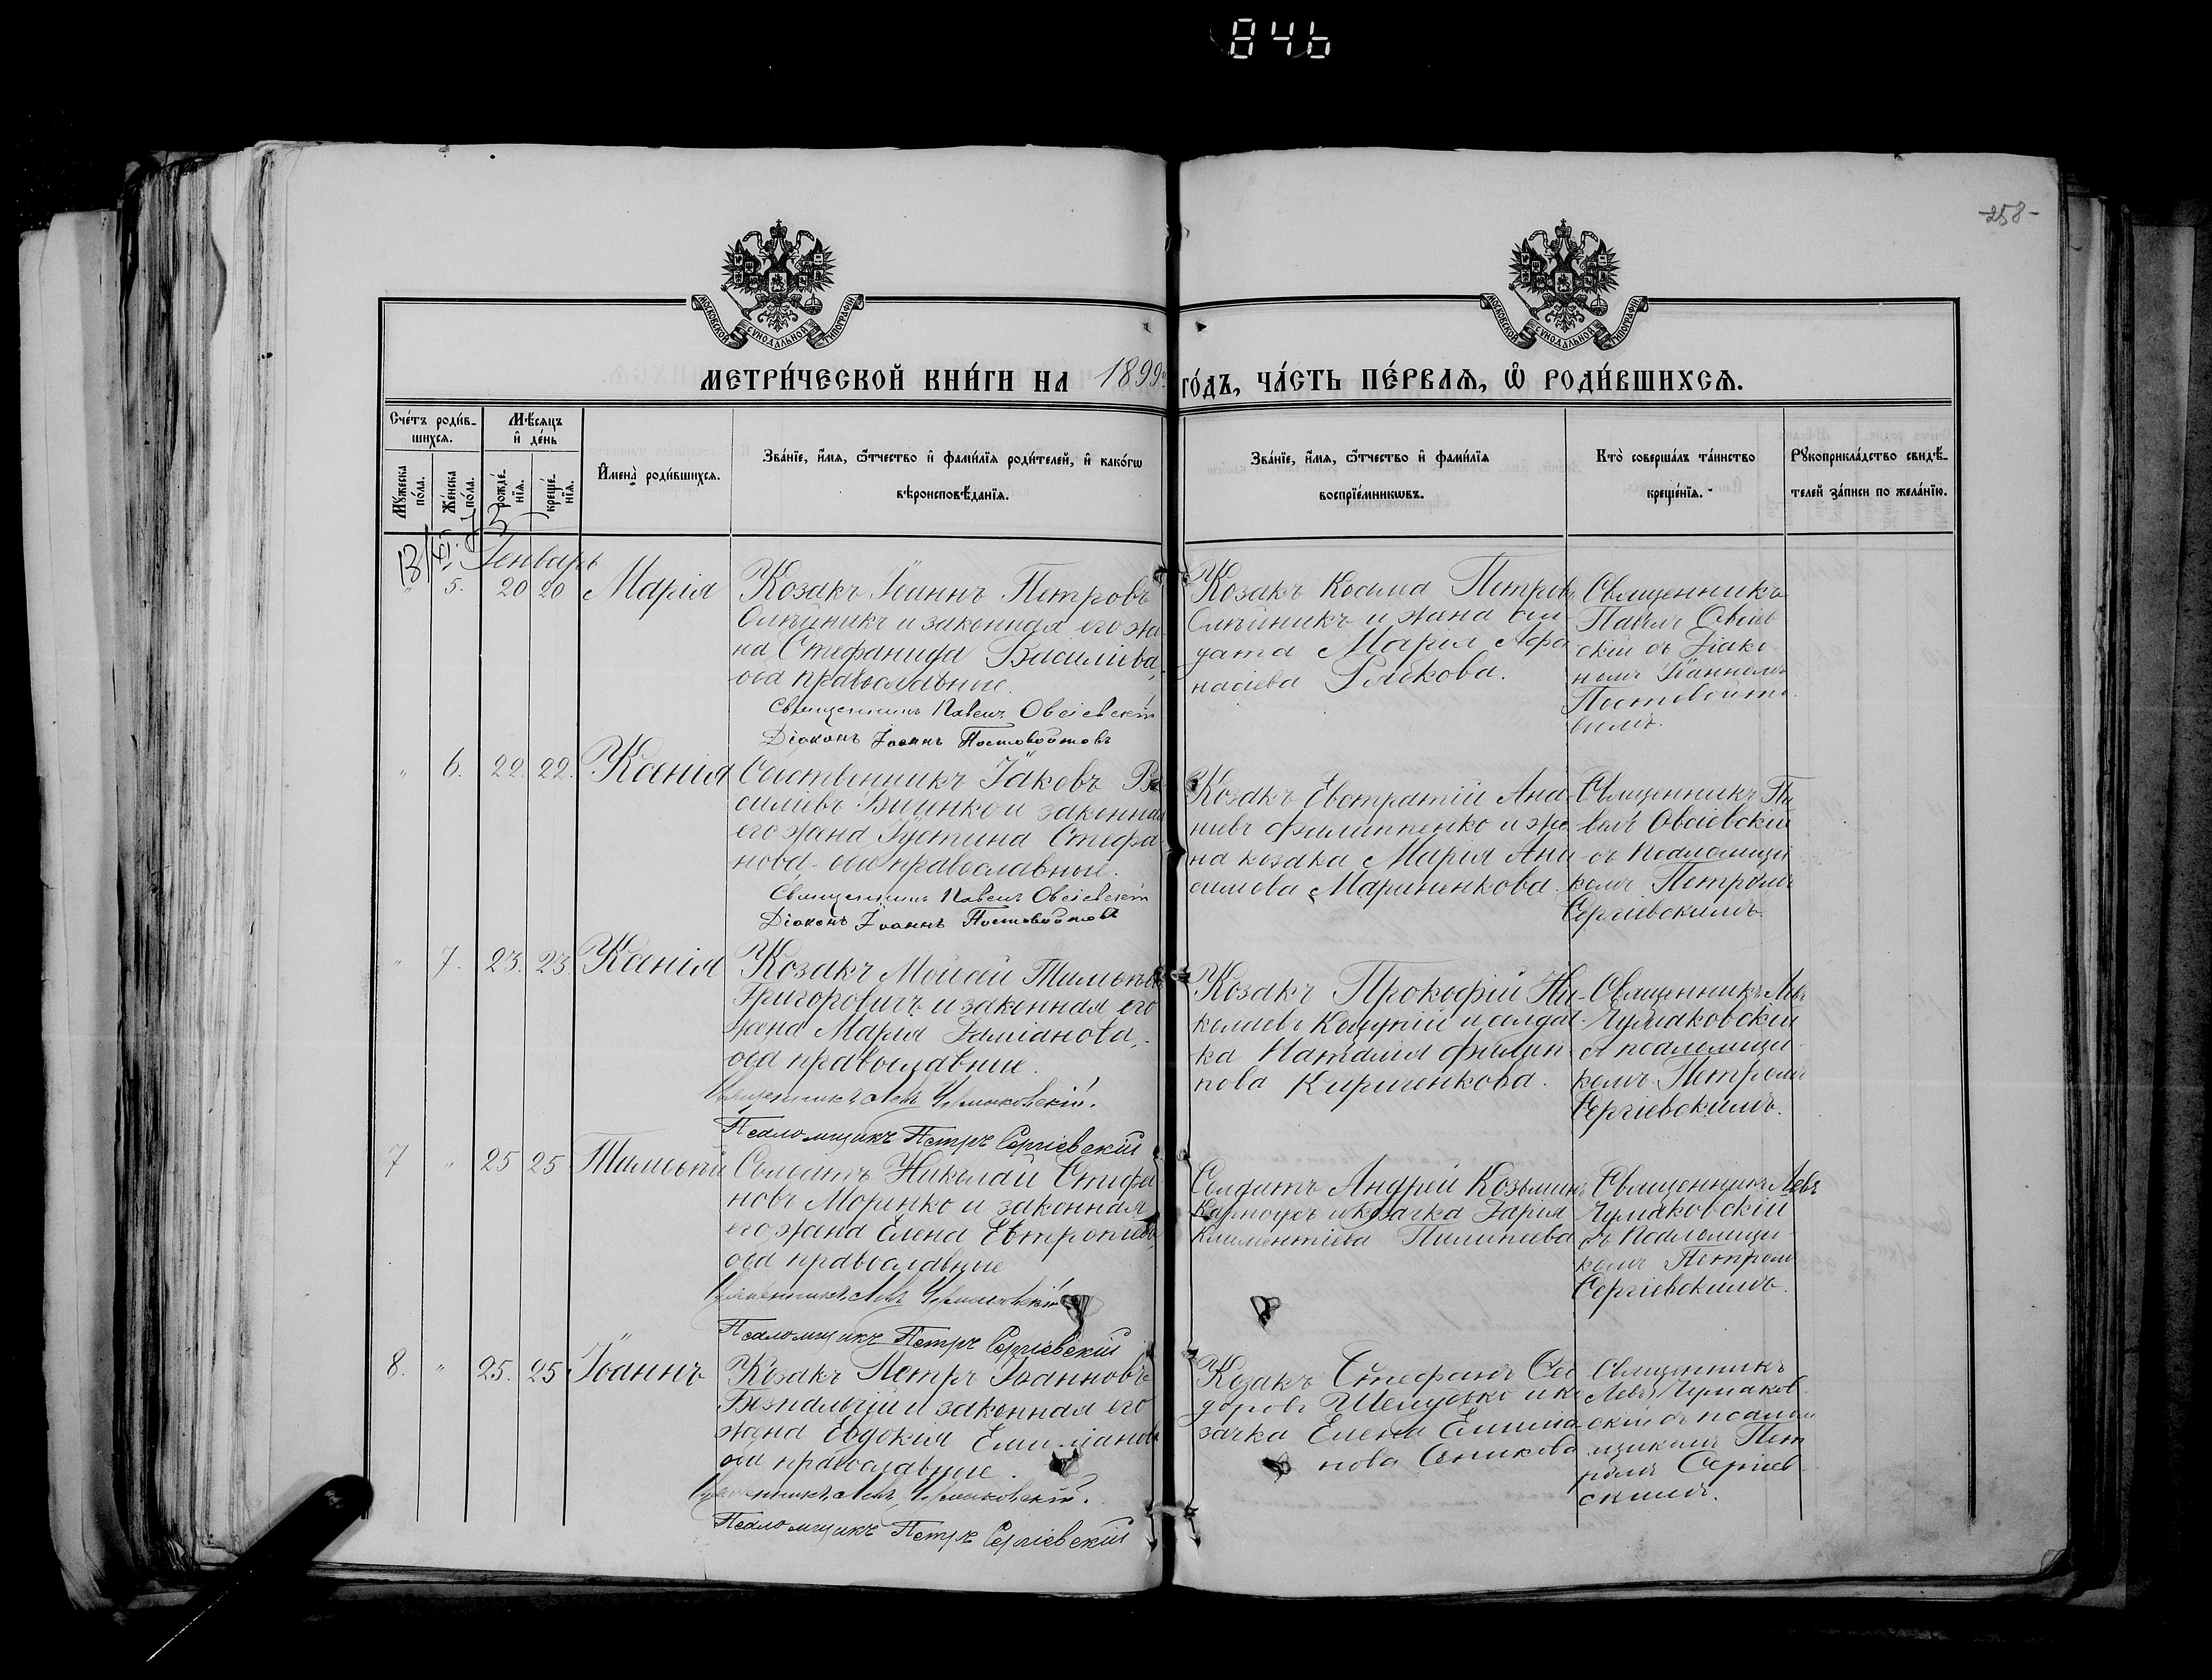 846
-258-
МОСКОВСКОЙ СѴНОДАЛЬНОЙ ТИПОГРАФІИ
МОСКОВСКОЙ СѴНОДАЛЬНОЙ ТИПОГРАФІИ
МЕТРИ́ЧЕСКОЙ КНИ́ГИ НА 1899й го́дъ, ча́сть пе́рваѧ, ѽ роди́вшихсѧ.
Сче́тъ роди́в-
шихсѧ.
Мꙋ́жеска по́ла.
Же́нска по́ла.
Мѣ́сѧцъ и҆ де́нь
рожде́нїѧ.
креще́нїѧ.
И҆мена̀ роди́вшихсѧ.
Зва́нїе, и҆́мѧ, ѻ҆́тчество и҆ фами́лїѧ роди́телей, и҆ како́гѡ
вѣроисповѣ́данїѧ.
Зва́нїе, и҆́мѧ, ѻ҆́тчество и҆ фами́лїѧ
воспрїе́мникѡвъ.
Кто̀ соверша́лъ та́инство
креще́нїѧ.
Рꙋкоприкла́дство свидѣ́-
телей за́писи по жела́нїю.
Генварь
" 5. 20 20 Марія
Козакъ Іоаннъ Петровъ
Олѣйникъ и законная его же
на Стефанида Василіева,
оба православные.
Священникъ Павелъ Овсіевскій
Діаконъ Іоаннъ Постовойтовъ
Козакъ Косма Петровъ
Олѣйникъ и жена сол
дата Марія Афа
насіева Рябкова.
Священникъ
Павелъ Овсіев
скій съ Діако
номъ Іоанномъ
Постовойто
вымъ.
" 6. 22. 22. Ксенія
Собственникъ Іаковъ Ва
силіевъ и законная
его жена Іустина Стефа
нова, оба православные.
Священникъ Павелъ Овсіевскій
Діаконъ Іоаннъ Постовойтовъ
Козакъ Евстратій Ана
ніевъ Филиппенко и же
на козака Марія Они
симова Мариненкова.
Священникъ Па
велъ Овсіевскій
съ Псаломщи
комъ Петромъ
Сергіевскимъ.
" 7. 23. 23. Ксенія
Козакъ Мойсей Тимоѳеевъ
Григоровичъ и законная его
жена Марія Даміанова,
оба православные.
Священникъ Левъ Чумаковскій.
Псаломщикъ Петръ Сергіевскій
Козакъ Прокофій Ни
колаевъ и солдат
ка Наталія Филип
пова Кириченкова.
Священникъ Левъ
Чумаковскій
съ псаломщи
комъ Петромъ
Сергіевскимъ.
7 " 25 25 Тимоѳей
Солдатъ Николай Стефа
новъ Моренко и законная
его жена Елена Евтропіева,
оба православные
Священникъ Левъ Чумаковскій
Псаломщикъ Петръ Сергіевскій
Солдатъ Андрей Козьминъ
и козачка Дарія
Климентіева
Священникъ Левъ
Чумаковскій
съ Псаломщи
комъ Петромъ
Сергіевскимъ.
8. " 25. 25 Іоаннъ
Козакъ Петръ Іоанновъ
Безпальчій и законная его
жена Евдокія Емиліанова
оба православные.
Священникъ Левъ Чумаковскій.
Псаломщикъ Петръ Сергіевскій
Козакъ Стефанъ Сео
доровъ Шелудько и ко
зачка Елена Емилиа
нова
Священникъ
Левъ Чумаков
скій съ псалом
щикомъ Пет
ромъ Сергіев
скимъ.